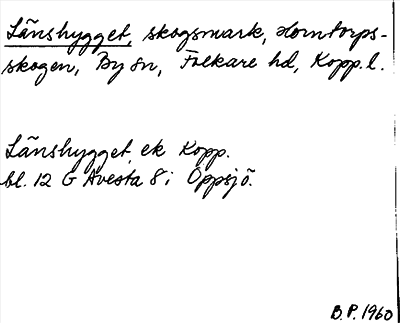 Länshygget, skogsmark, Horntorps-
skogen, By sn, Folkare hd, Kopp. l.
Länshygget, ek Kopp.
bl. 12 G Avesta 8 i Oppsjö.
B.P. 1960